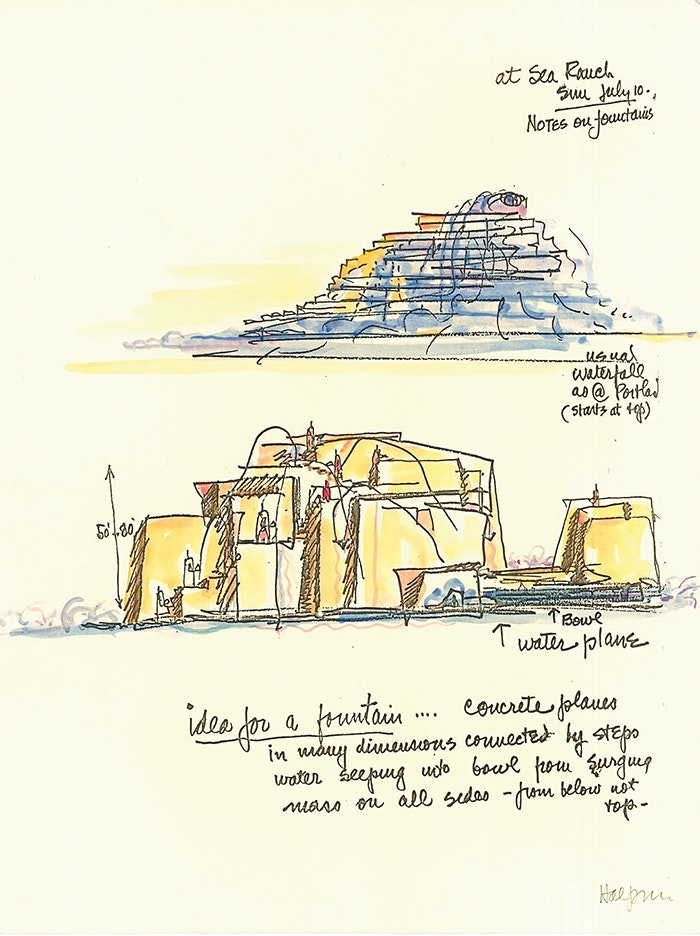 at Sea Ranch
Sun July 10.
NOTES on fountains
usual
waterfall
as @ Portlad
(starts at top)
50'-80'
Bowl
water plane
idea for a fountain .... concrete planes
in many dimensions connected by steps
water seeping into bowl from surging
mass on all sides - from below not
top -
Halprin